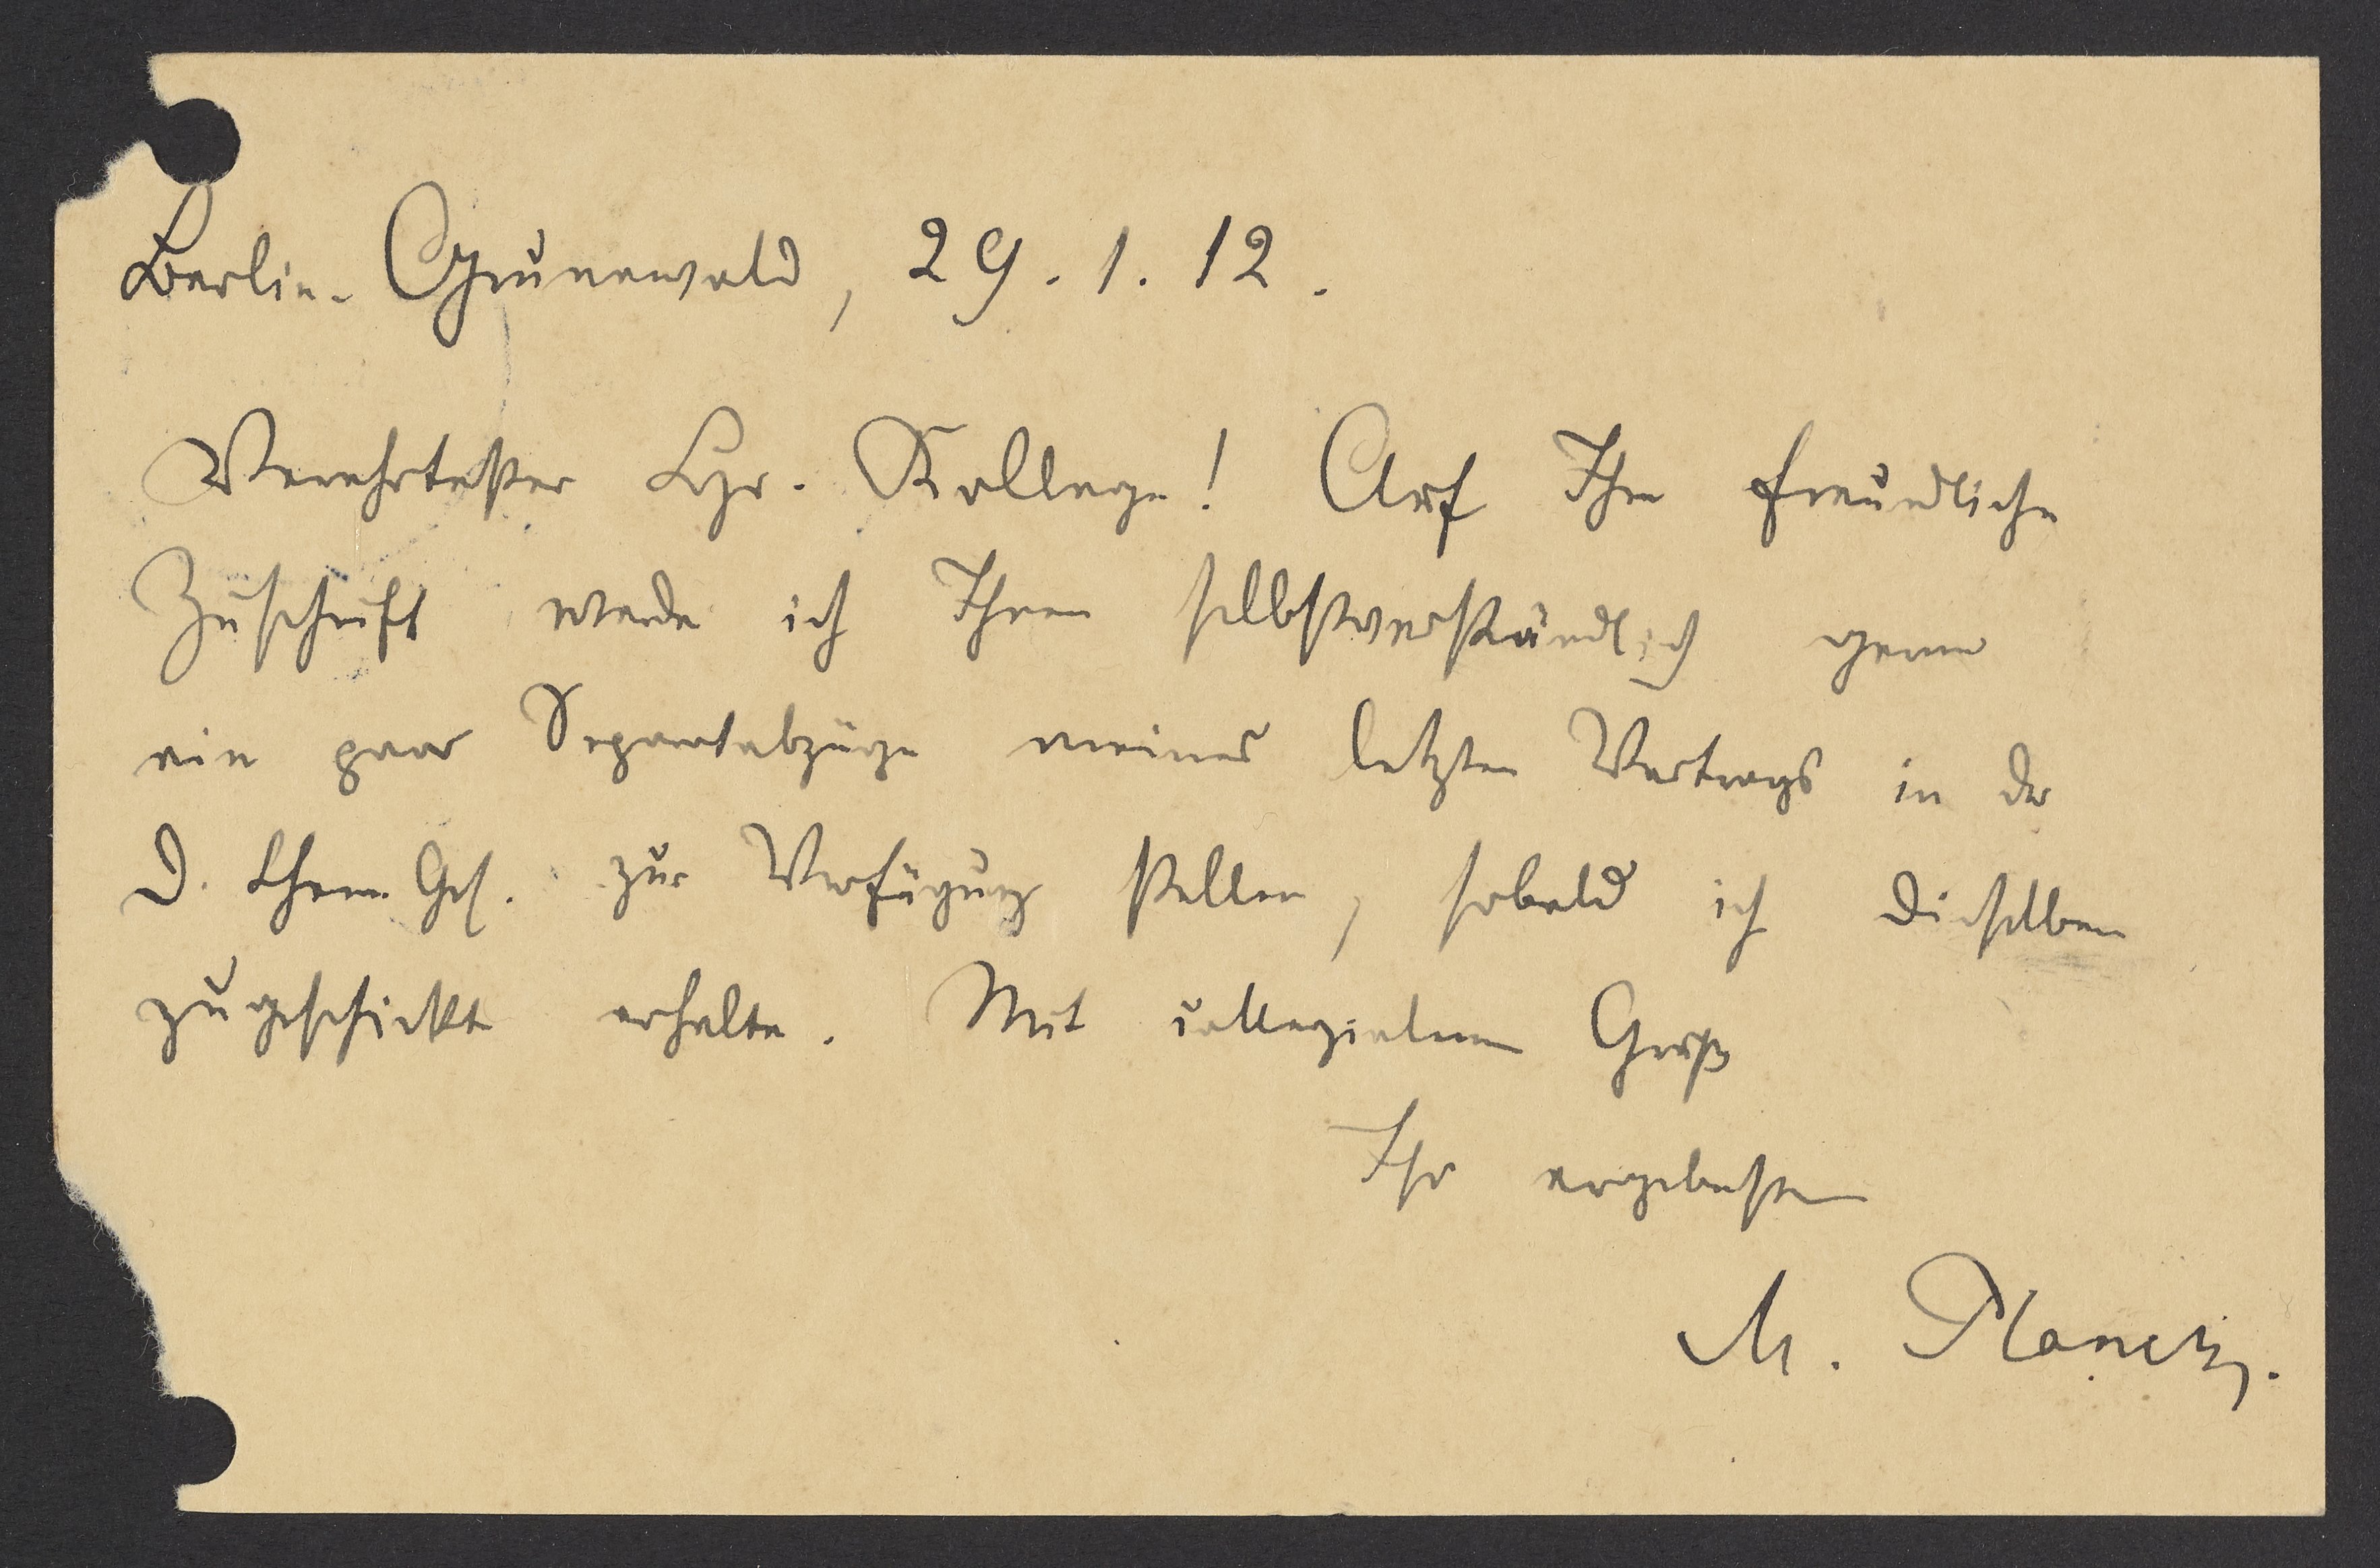 Berlin-Grunewald, 29. 1. 12.
Verehrtester Hr. Kollege! Auf Ihre freundliche
Zuschrift werde ich Ihnen selbstverständlich gerne
ein paar Separatabzüge meines letzten Vortrags in der
D. Chem. Ges. zur Verfügung stellen, sobald ich dieselben
zugeschickt erhalte. Mit collegialem Gruß
Ihr ergebenster
M. Planck.